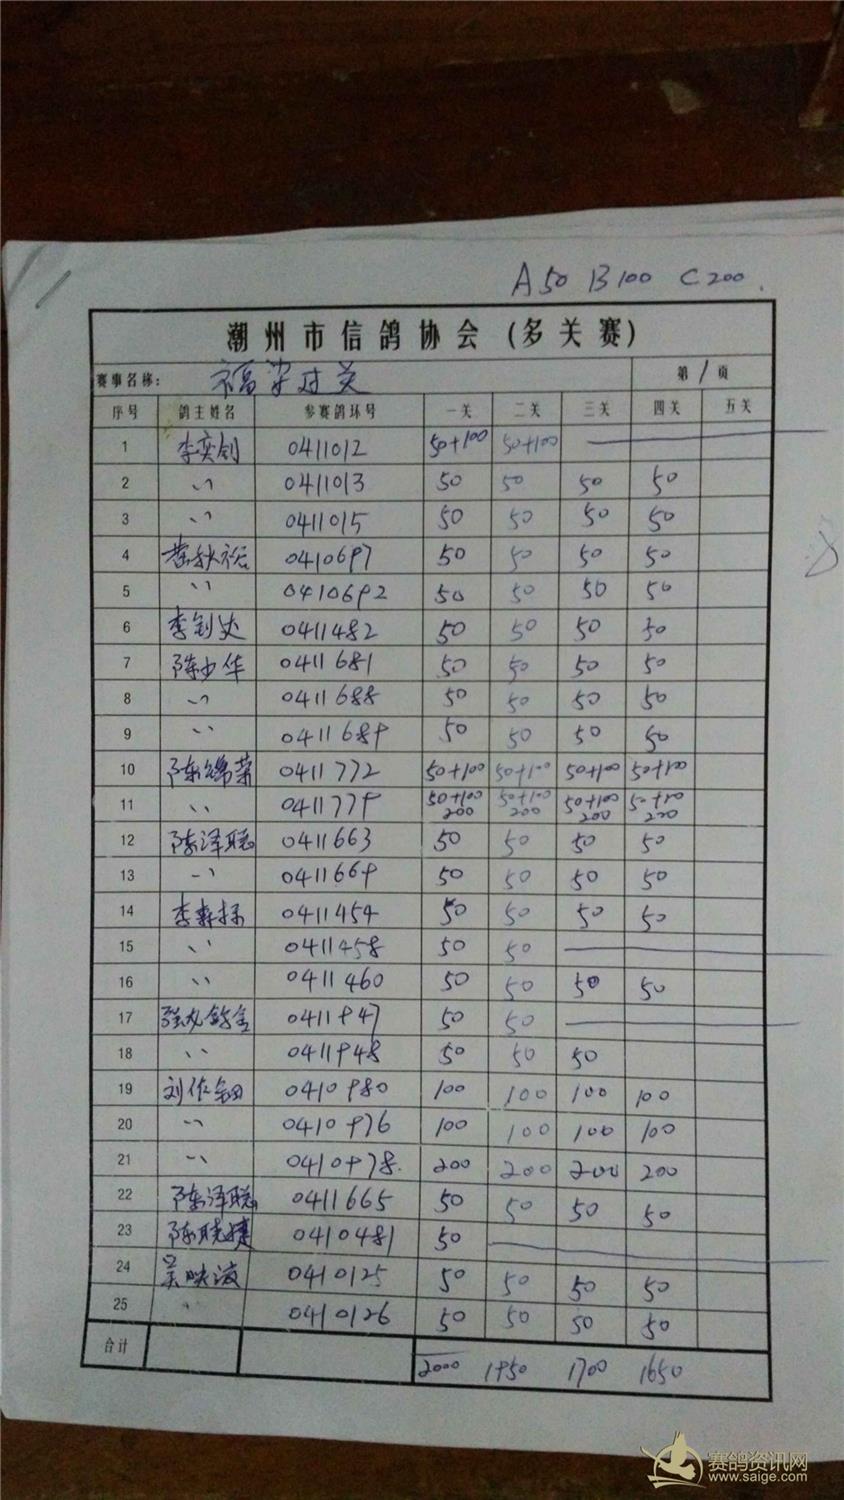 A50 B100 C200.
潮州市信鸽协会(多关赛)
赛事名称: 福安过关 第1页
序号 鸽主姓名 参赛鸽环号 一关 二关 三关 四关 五关
1 李奕钊 0411012 50+100 50+100
2 〃 0411013 50 50 50 50
3 〃 0411015 50 50 50 50
4 黄秋裕 0410697 50 50 50 50
5 〃 0410692 50 50 50 50
6 李钊达 0411482 50 50 50 50
7 陈少华 0411681 50 50 50 50
8 〃 0411688 50 50 50 50
9 〃 0411689 50 50 50 50
10 陈绵荣 0411772 50+100 50+100 50+100 50+100
11 〃 0411779 50+100 200 50+100 200 50+100 200 50+100 200
12 陈泽聪 0411663 50 50 50 50
13 〃 0411669 50 50 50 50
14 李 0411454 50 50 50 50
15 〃 0411458 50 50
16 〃 0411460 50 50 50 50
17 0411947 50 50
18 〃 0411948 50 50 50
19 刘佐钿 0410980 100 100 100 100
20 〃 0410976 100 100 100 100
21 〃 0410978. 200 200 200 200
22 陈泽聪 0411665 50 50 50 50
23 陈晓捷 0410481 50
24 吴映波 0410125 50 50 50 50
25 〃 0410126 50 50 50 50
合计 2000 1950 1700 1650
赛鸽资讯网
www.saige.com